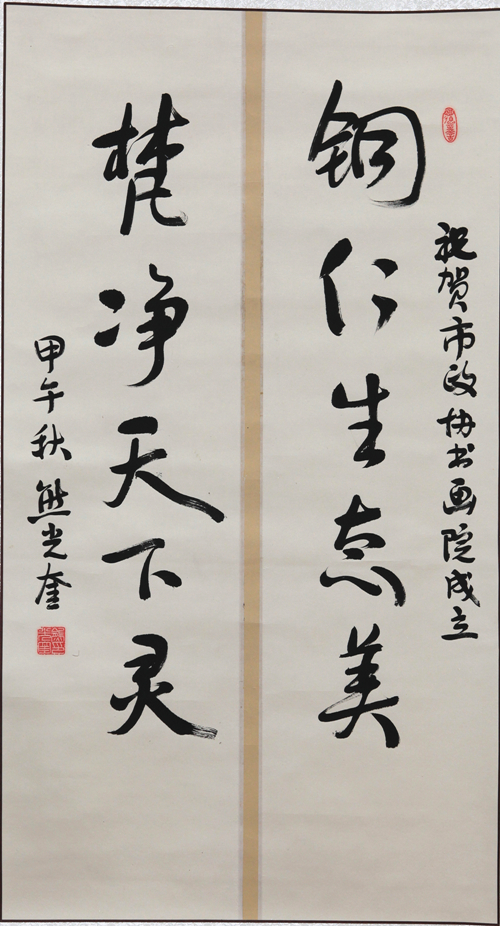 祝贺市政协书画院成立
铜仁生态美
梵净天下灵
甲午秋 熊光奎